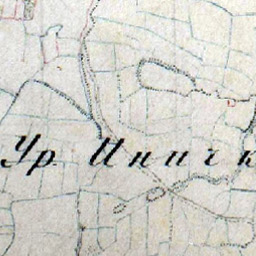 Ур. Иничк